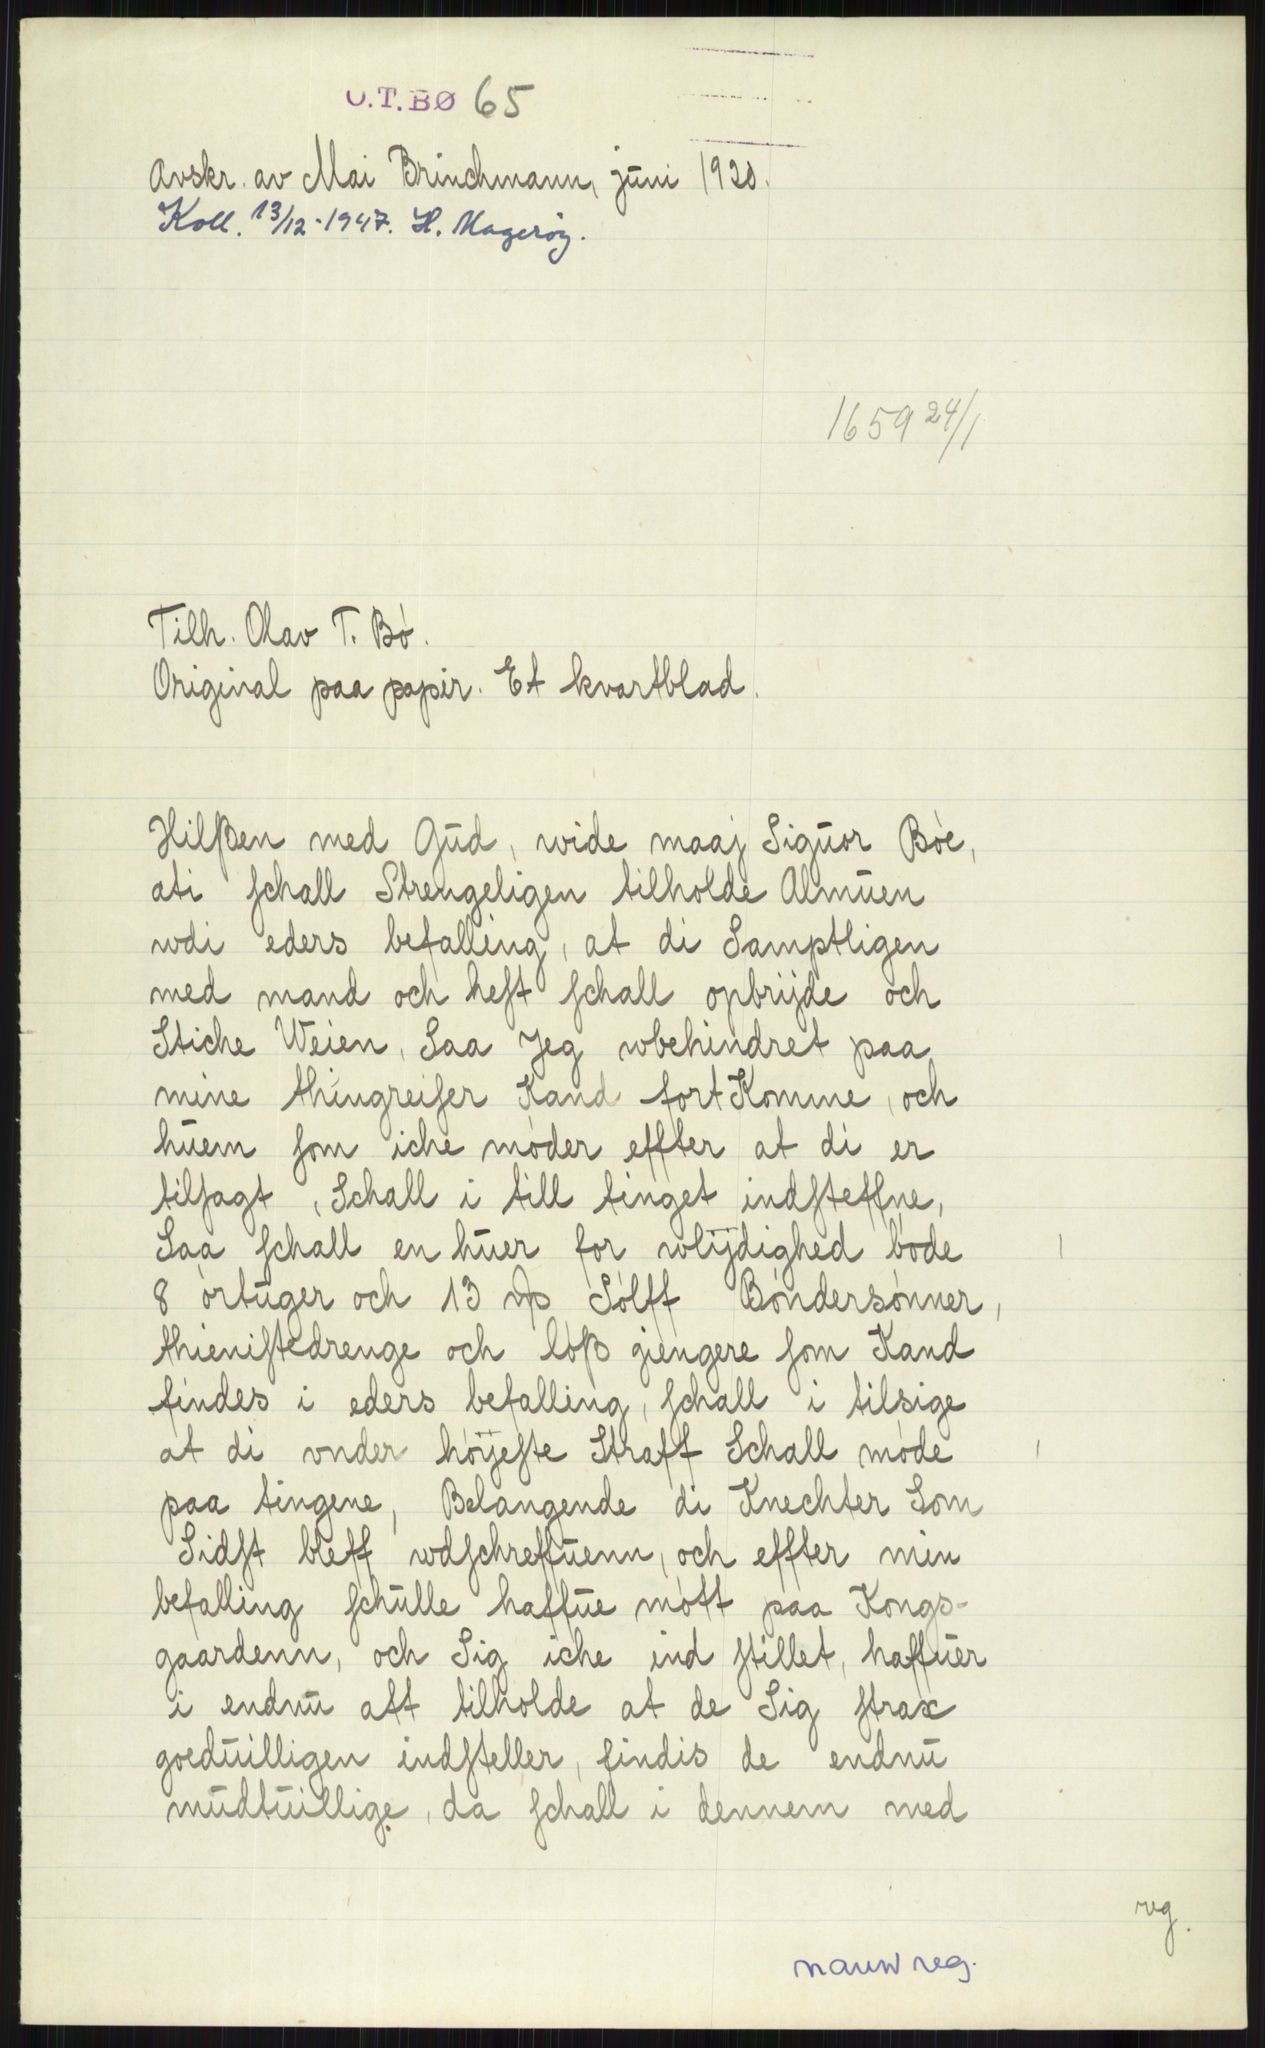 O.T.BØ 65
Avskr. av Mai Brinchmann, juni 1920.
Koll. 13/12-1947. H. Magerøy.
1659 24/1
Tilh. Olav T. Bø.
Original paa papir. Et kvartblad.
Hilßen med Gud, wide maaj Siguor Bøe,
ati schall Strengeligen tilholde Almuen
wdi eders befalling, at di Samptligen
med mand och hest schall opbrijde och
Stiche Weien, Saa Jeg wbehindret paa
mine thingreiser Kand fort Komme, och
huem som iche møder effter at di er
tilsagt, Schall i till tinget indsteffne,
Saa schall en huer for wlÿdighed bøde
8 ørtuger och 13 Sølff Bøndersønner,
thienistedrenge och løß giengere som Kand
findes i eders befalling, schall i tilsige
at di vnder høÿeste Straff Schall møde
paa tingene, Belangende di Knechter Som
Sidst bleff wdschreffuenn, och effter min
befalling schulle haffue møtt paa Kongs-
gaardenn, och Sig iche ind stillet, haffuer
i endnu att tilholde at de Sig strax
goeduilligen indsteller, findis de endnu
mudtuillige, da schall i dennem med
rg.
navnreg.